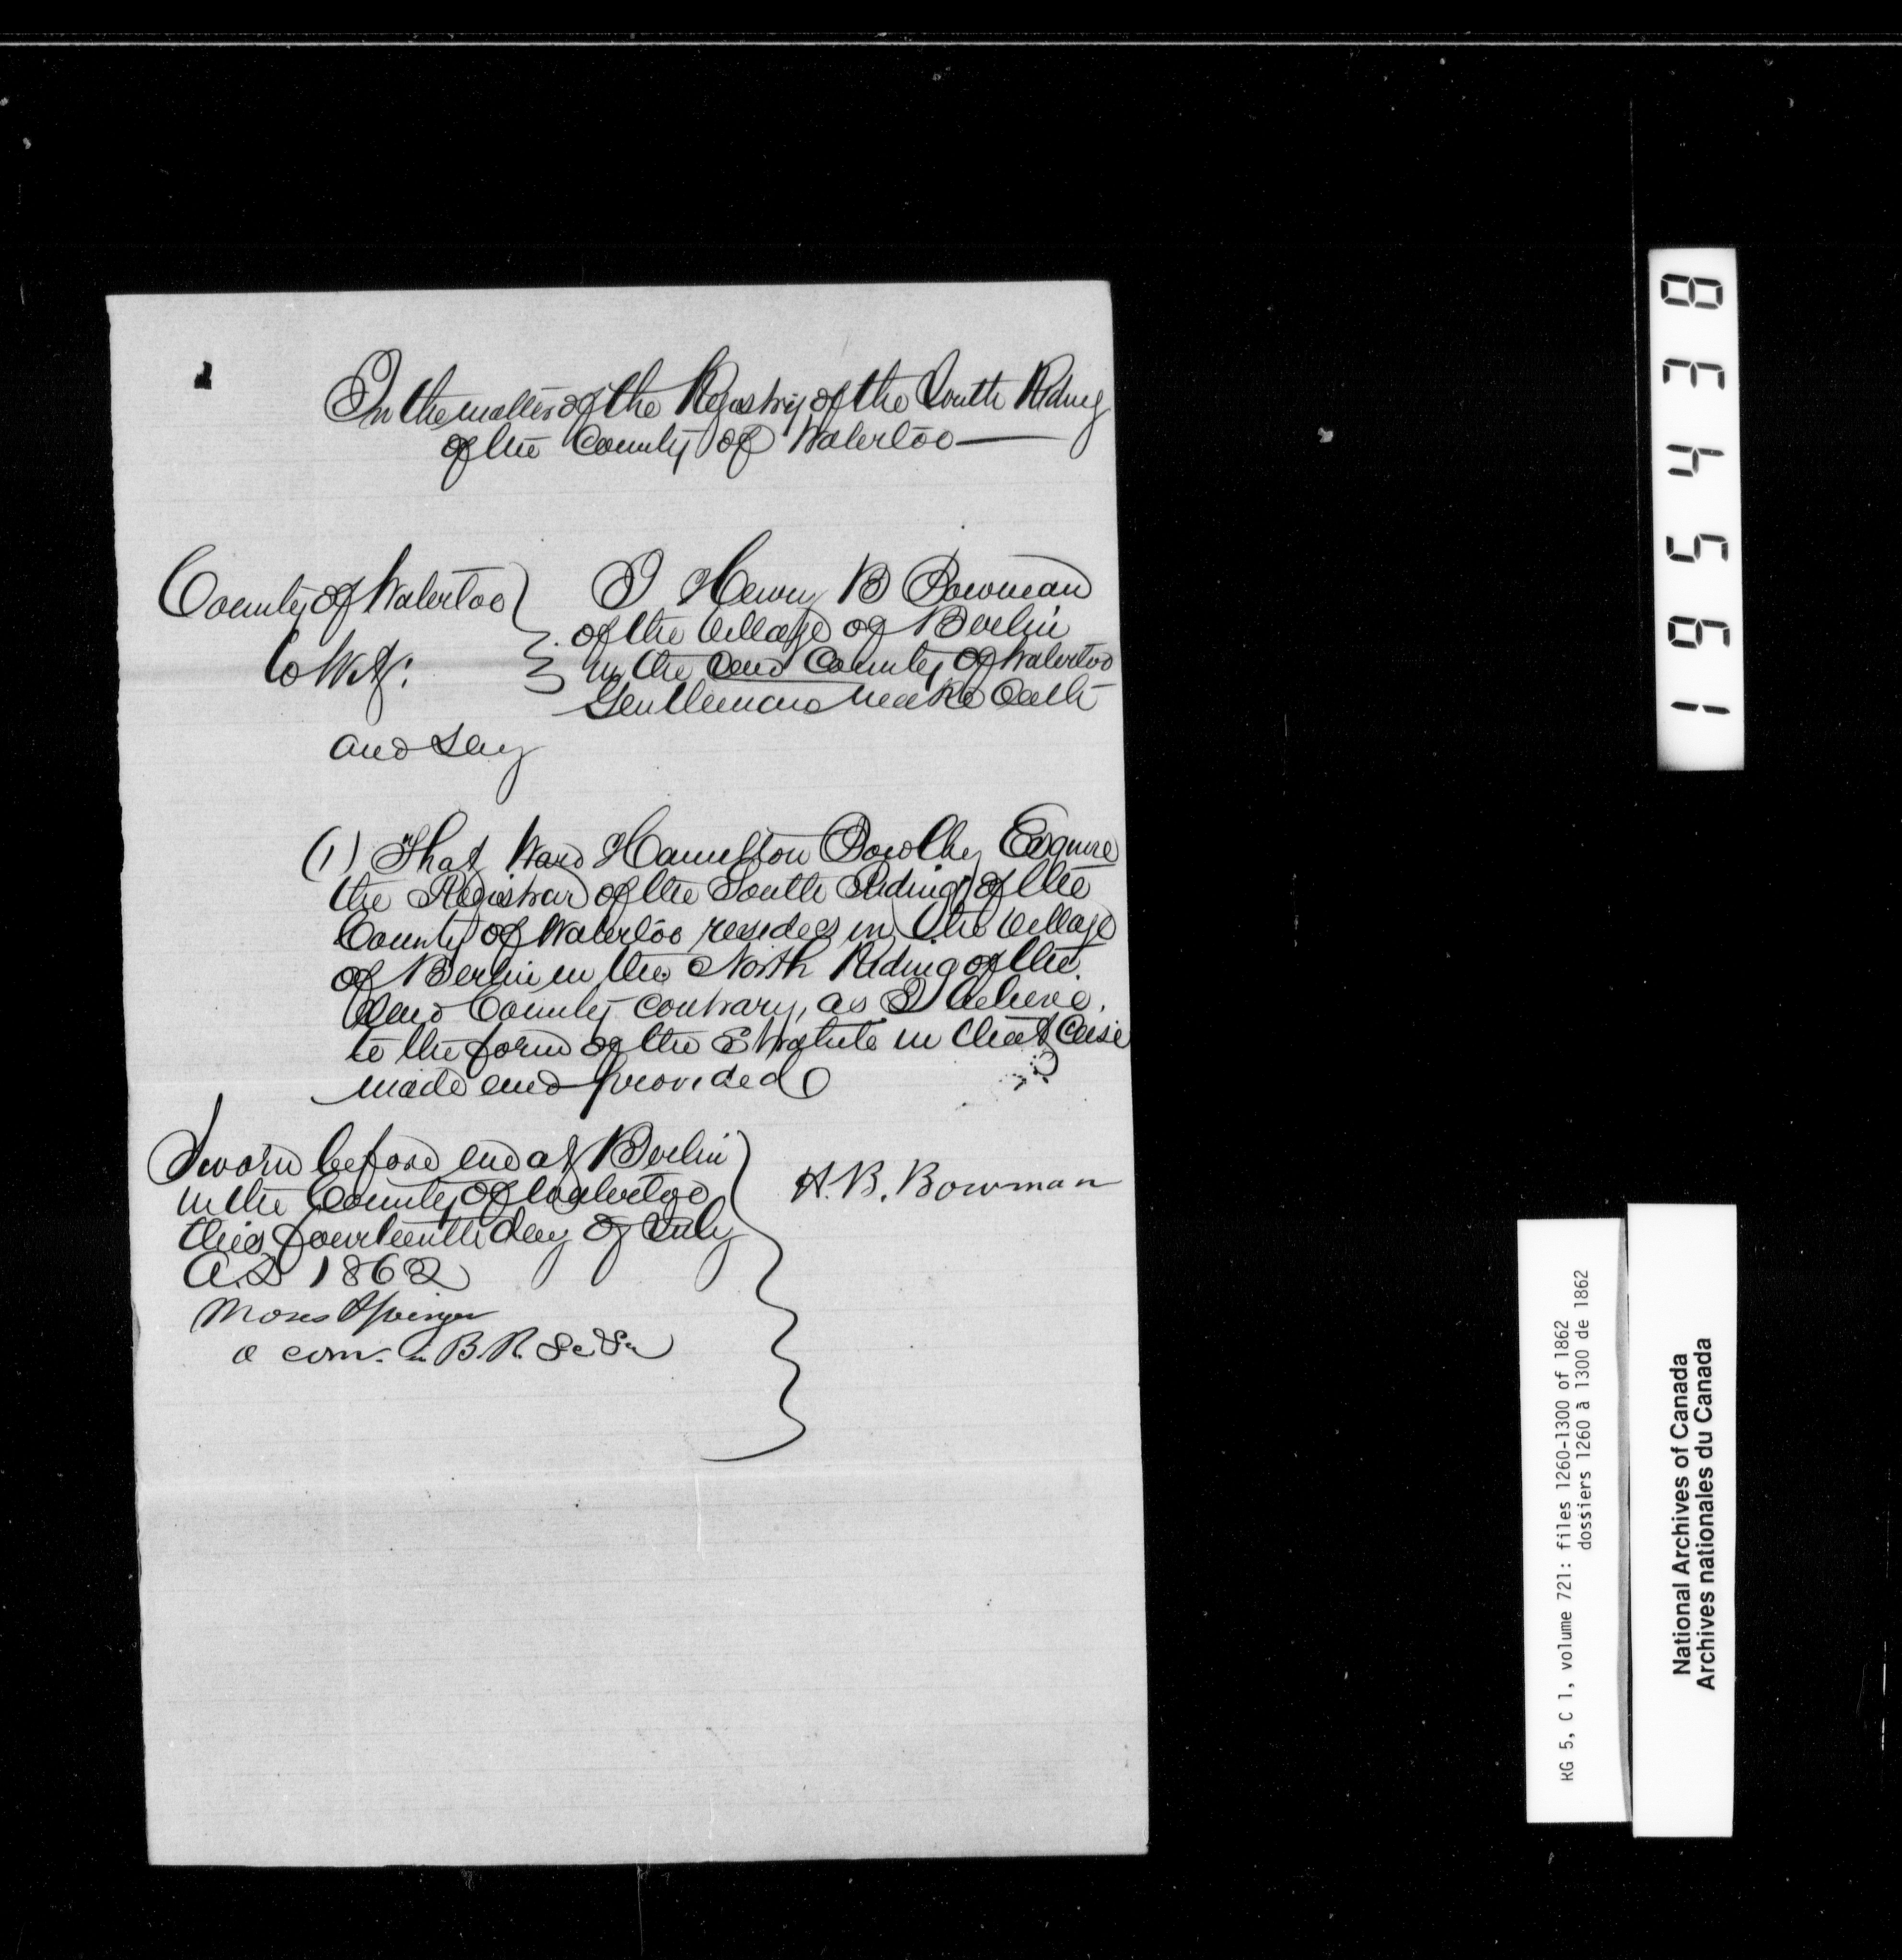 In the matter of the Registry of the South Riding
of the County of Waterloo
County of Waterloo
to Wit:
I Henry B Bowman
of the Village of Berlin
in the said County of Waterloo
Gentleman make Oath
and Say
(1) That Ward Hamilton Bowlby Esquire
the Registrar of the South Riding of the
County of Waterloo resides in the Village
of Berlin in the North Riding of the
Said County contrary, as I believe,
to the form of the Statute in that Case
made and provided
Sworn before me at Berlin
in the County of Waterloo
this fourteenth day of July
A.D 1862
Moses Springer
a com. in B.R. &c &c
H. B. Bowman
195438
RG 5, C 1, volume 721: files 1260-1300 of 1862
dossiers 1260 à 1300 de 1862
National Archives of Canada
Archives nationales du Canada